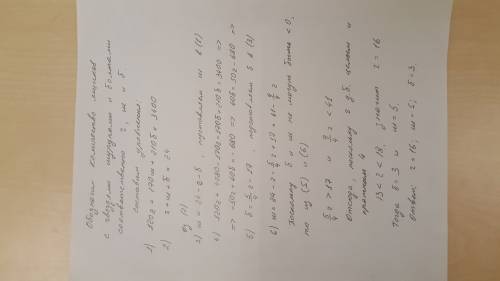 Обозначим количество ящиков
с гвоздями, шурупами и болтами
соответственно г, ш и б.
Составим уравнения:
1) 120г + 170ш + 210б = 3400
2) г + ш + б = 24
из (2)
3) ш = 24 - г - б, подставляем ш в (1)
4) 120г + 4080 - 170г - 170б + 210б = 3400 =>
=> -50г + 40б = -680 => 40б = 50г - 680 =>
5) б = 5/4 г - 17, подставляем б в (3)
6) ш = 24 - г - 5/4 г + 17 = 41 - 9/4 г
Поскольку б и ш не могут быть < 0,
то из (5) и (6)
5/4 г > 17 и 9/4 г < 41
Отсюда, поскольку г д.б. целым и
кратным 4
13 < г < 18, значит г = 16
Тогда б = 3 и ш = 5.
Ответ: г = 16; ш = 5; б = 3.